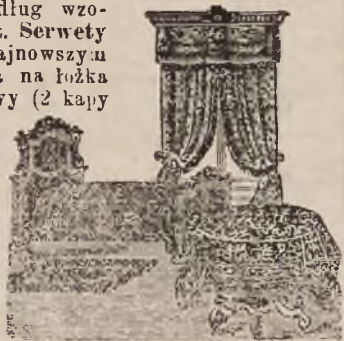 dług wzo-
ż. Serwety
ajnowszym
na łożka
wy (2 kapy